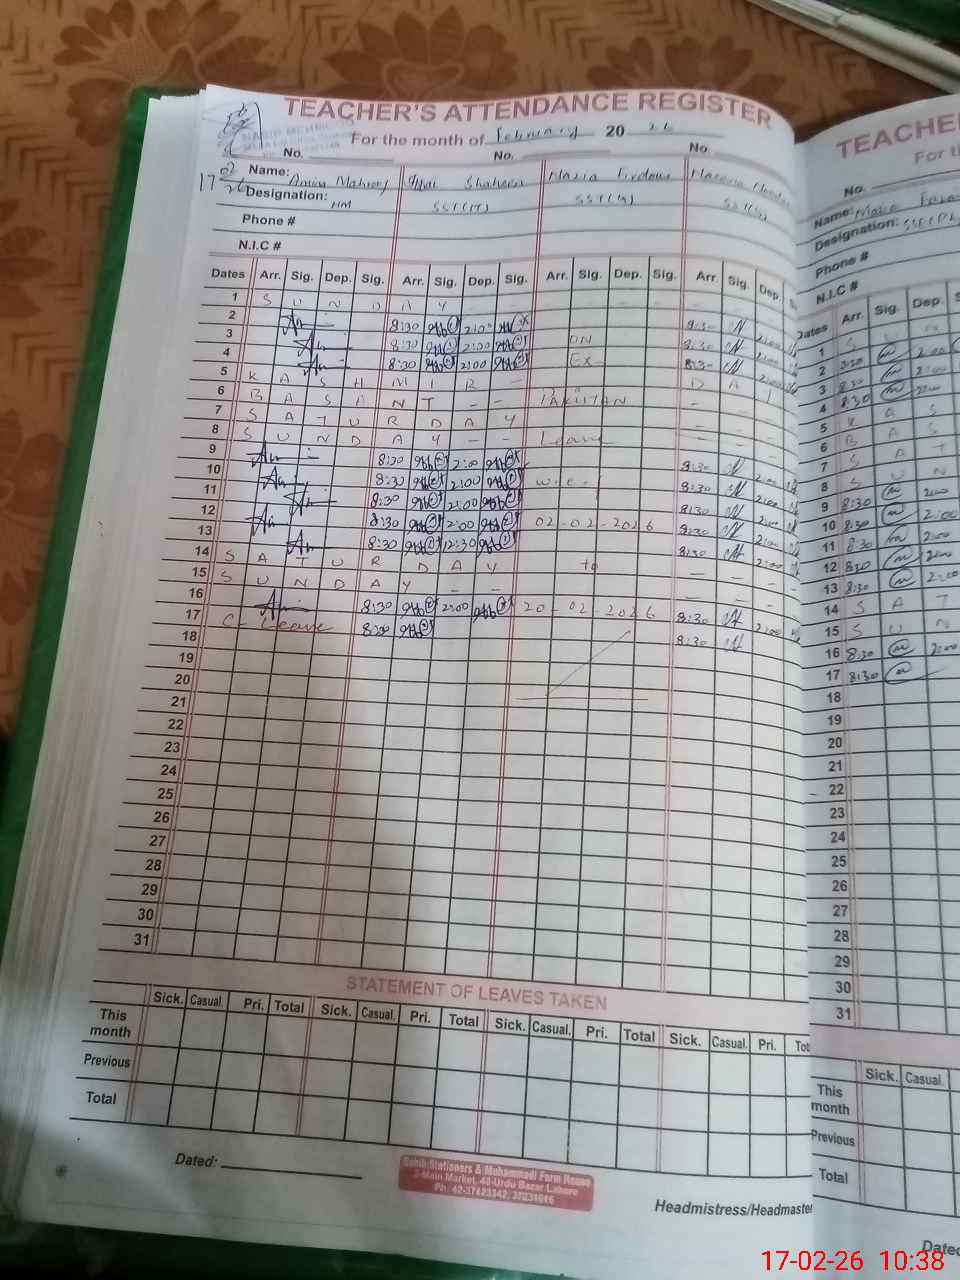 TEACHER'S ATTENDANCE REGISTER
For the month of February 2026
No. No. No.
17 02 26
Name: Shaheen Nazia Firdous
Designation: HM SST(IT)
Phone #
N.I.C #
Dates Arr. Sig. Dep. Sig. Arr. Sig. Dep. Sig. Arr. Sig. Dep. Sig. Arr. Sig. Dep.
1 S U N D A Y
2 8:30 2:00 8:30 2:00
3 8:30 2:00 ON 8:30 2:00
4 8:30 2:00 Ex 8:30 2:00
5 K A S H M I R - D A Y
6 B A S A N T - - PAKISTAN
7 S A T U R D A Y
8 S U N D A Y - - Leave
9 8:30 2:00 8:30 2:00
10 8:30 2:00 w.e.f 8:30 2:00
11 8:30 2:00 8:30 2:00
12 8:30 2:00 02-02-2026 8:30 2:00
13 8:30 12:30 8:30
14 S A T U R D A Y to
15 S U N D A Y - -
16 8:30 2:00 20-02-2026 8:30 2:00
17 C-Leave 8:30
18
19
20
21
22
23
24
25
26
27
28
29
30
31
STATEMENT OF LEAVES TAKEN
Sick. Casual. Pri. Total Sick. Casual. Pri. Total Sick. Casual. Pri. Total Sick. Casual. Pri. Tot
This month
Previous
Total
Dated:
Sohib Stationers & Mohammadi Form House
2-Main Market, 40-Urdu Bazar Lahore
Headmistress/Headmaster
TEACHE
For th
No.
Name:
Designation:
Phone #
N.I.C #
Dates Arr. Sig. Dep.
1 S U N
2 8:30 2:00
3 8:30 2:00
4 8:30 2:00
5 K A S
6 B A S
7 S A T
8 S U N
9 8:30 2:00
10 8:30 2:00
11 8:30 2:00
12 8:30 2:00
13 8:30 2:00
14 S A T
15 S U N
16 8:30 2:00
17 8:30
18
19
20
21
22
23
24
25
26
27
28
29
30
31
Sick. Casual.
This month
Previous
Total
Dated
17-02-26 10:38